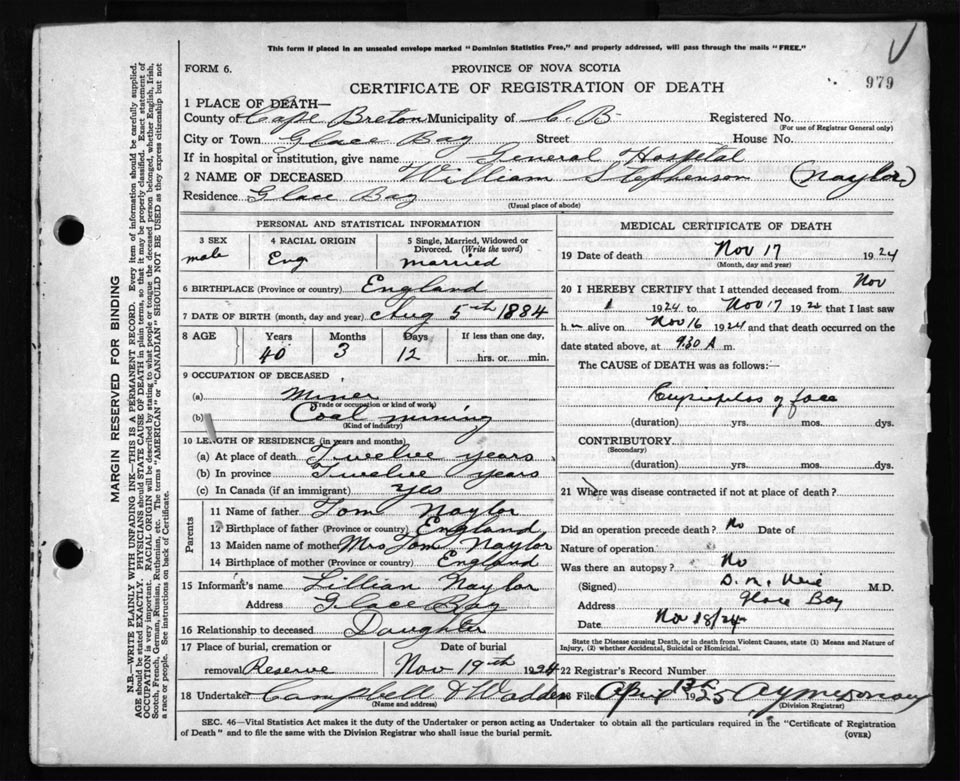 This form if placed in an unsealed envelope marked "Dominion Statistics Free," and properly addressed, will pass through the mails "FREE."
FORM 6.
PROVINCE OF NOVA SCOTIA
979
CERTIFICATE OF REGISTRATION OF DEATH
1 PLACE OF DEATH—
County of Cape Breton Municipality of C.B. Registered No.
(For use of Registrar General only)
City or Town Glace Bay Street House No.
If in hospital or institution, give name General Hospital
2 NAME OF DECEASED William Stephenson (Naylor)
Residence Glace Bay
(Usual place of abode)
PERSONAL AND STATISTICAL INFORMATION
3 SEX
male
4 RACIAL ORIGIN
Eng
5 Single, Married, Widowed or Divorced. (Write the word)
married
6 BIRTHPLACE (Province or country) England
7 DATE OF BIRTH (month, day and year) Aug 5th 1884
8 AGE Years Months Days If less than one day,
40 3 12 hrs. or min.
9 OCCUPATION OF DECEASED
(a) Miner
(Trade or occupation or kind of work)
(b) Coal mining
(Kind of industry)
10 LENGTH OF RESIDENCE (in years and months)
(a) At place of death Twelve years
(b) In province Twelve years
(c) In Canada (if an immigrant) yes
Parents
11 Name of father Tom Naylor
12 Birthplace of father (Province or country) England
13 Maiden name of mother Mrs Tom Naylor
14 Birthplace of mother (Province or country) England
15 Informant's name Lillian Naylor
Address Glace Bay
16 Relationship to deceased Daughter
17 Place of burial, cremation or removal Reserve
Date of burial
Nov 19th 1924
18 Undertaker Campbell & Wadden
(Name and address)
MEDICAL CERTIFICATE OF DEATH
19 Date of death Nov 17 1924
(Month, day and year)
20 I HEREBY CERTIFY that I attended deceased from Nov
1 1924 to Nov 17 1924 that I last saw
him alive on Nov 16 1924 and that death occurred on
date stated above, at 9.30 A m.
The CAUSE of DEATH was as follows:—
of face
(duration) yrs. mos. dys.
CONTRIBUTORY
(Secondary)
(duration) yrs. mos. dys.
21 Where was disease contracted if not at place of death?
Did an operation precede death? No Date of
Nature of operation
Was there an autopsy? No
(Signed) D. M. M.D.
Address Glace Bay
Date Nov 18/24
State the Disease causing Death, or in death from Violent Causes, state (1) Means and Nature of
Injury, (2) whether Accidental, Suicidal or Homicidal.
22 Registrar's Record Number
Filed April 13th 1925
(Division Registrar)
SEC. 46—Vital Statistics Act makes it the duty of the Undertaker or person acting as Undertaker to obtain all the particulars required in the "Certificate of Registration
of Death" and to file the same with the Division Registrar who shall issue the burial permit.
(OVER)
MARGIN RESERVED FOR BINDING
N.B.—WRITE PLAINLY WITH UNFADING INK—THIS IS A PERMANENT RECORD. Every item of information should be carefully supplied.
AGE should be stated EXACTLY. PHYSICIANS should STATE CAUSE OF DEATH in plain terms, so that it may be properly classified. Exact statement of
OCCUPATION is very important. RACIAL ORIGIN will be described by stating to what people or tongue the deceased person belonged, whether English, Irish,
Scotch, French, German, Russian, Ruthenian, etc. The terms "AMERICAN" or "CANADIAN" SHOULD NOT BE USED as they express citizenship but not
a race or people. See instructions on back of Certificate.